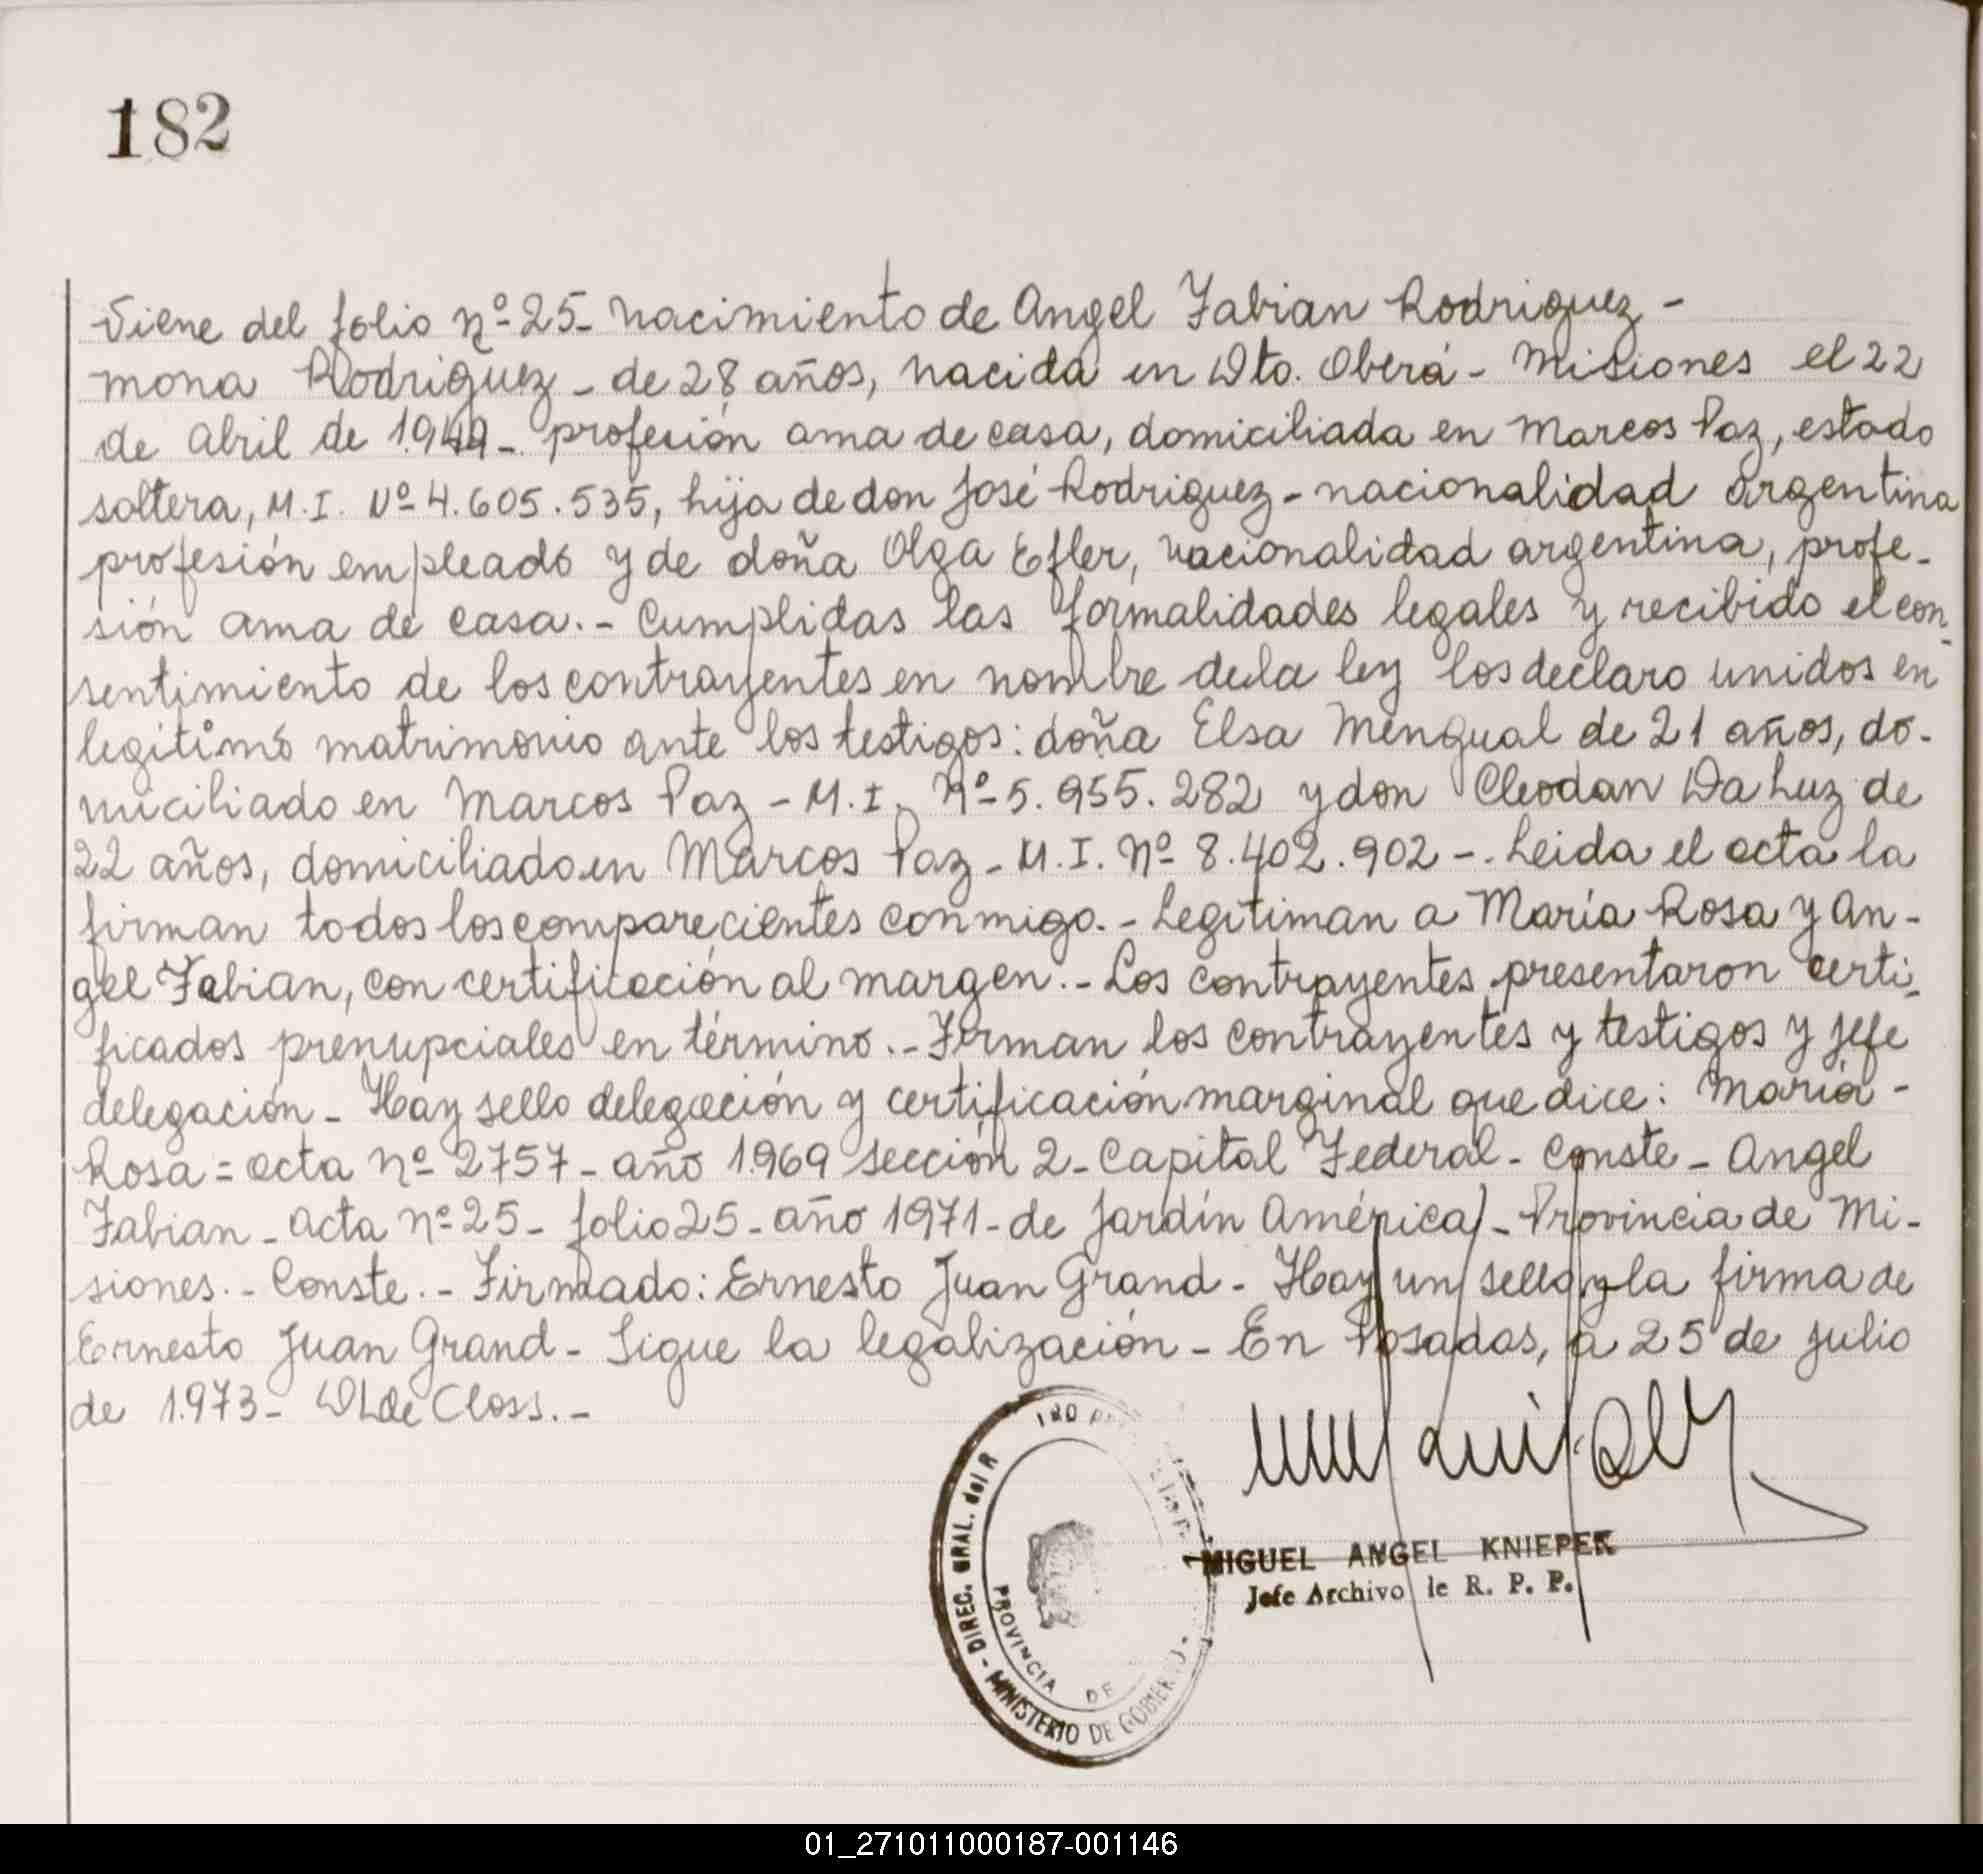 182
Viene del folio nº 25- nacimiento de Angel Fabian Rodriguez -
mona Rodriguez - de 28 años, nacida en Dto. Oberá - Misiones el 22
de Abril de 1.949 - profesión ama de casa, domiciliada en Marcos Paz, estado
soltera, M.I. Nº 4.605.535, hija de don José Rodriguez - nacionalidad argentina
profesión empleado y de doña Olga Efler, nacionalidad argentina, profe-
sión ama de casa.- Cumplidas las formalidades legales y recibido el con-
sentimiento de los contrayentes en nombre de la ley los declaro unidos en
legitimo matrimonio ante los testigos: doña Elsa Mengual de 21 años, do-
miciliado en Marcos Paz - M.I. Nº 5.955.282 y don Cleodan Da Luz de
22 años, domiciliado en Marcos Paz - M.I. Nº 8.402.902 -. Leida el acta la
firman todos los comparecientes conmigo.- Legitiman a María Rosa y An-
gel Fabian, con certificación al margen.- Los contrayentes presentaron certi-
ficados prenupciales en término.- Firman los contrayentes y testigos y jefe
delegación - Hay sello delegación y certificación marginal que dice: María -
Rosa = acta nº 2757 - año 1.969 sección 2 - Capital Federal - Conste - Angel
Fabian - acta nº 25 - folio 25 - año 1971 - de Jardín América - Provincia de Mi-
siones.- Conste.- Firmado: Ernesto Juan Grand - Hay un sello y la firma de
Ernesto Juan Grand - Sigue la legalización - En Posadas, a 25 de julio
de 1.973 - DL de Closs.-
DIREC. GRAL. del R
PROVINCIA DE
MINISTERIO DE GOBIERNO
MIGUEL ANGEL KNIEPER
Jefe Archivo de R. P. P.
01_271011000187-001146